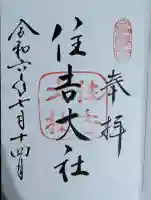 奉拝
住吉大社
令和六年七月十四日